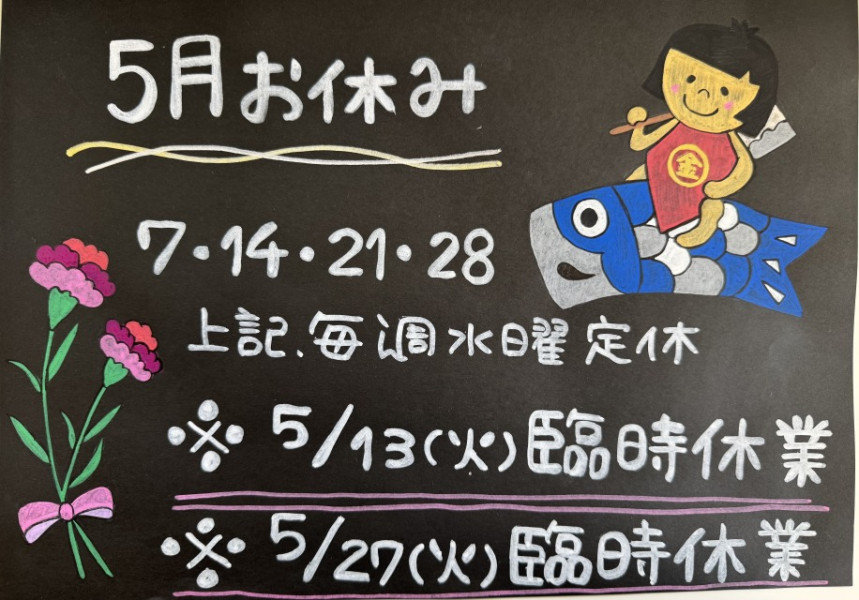 5月お休み
金
7・14・21・28
上記、毎週水曜定休
※ 5/13(火)臨時休業
※ 5/27(火)臨時休業